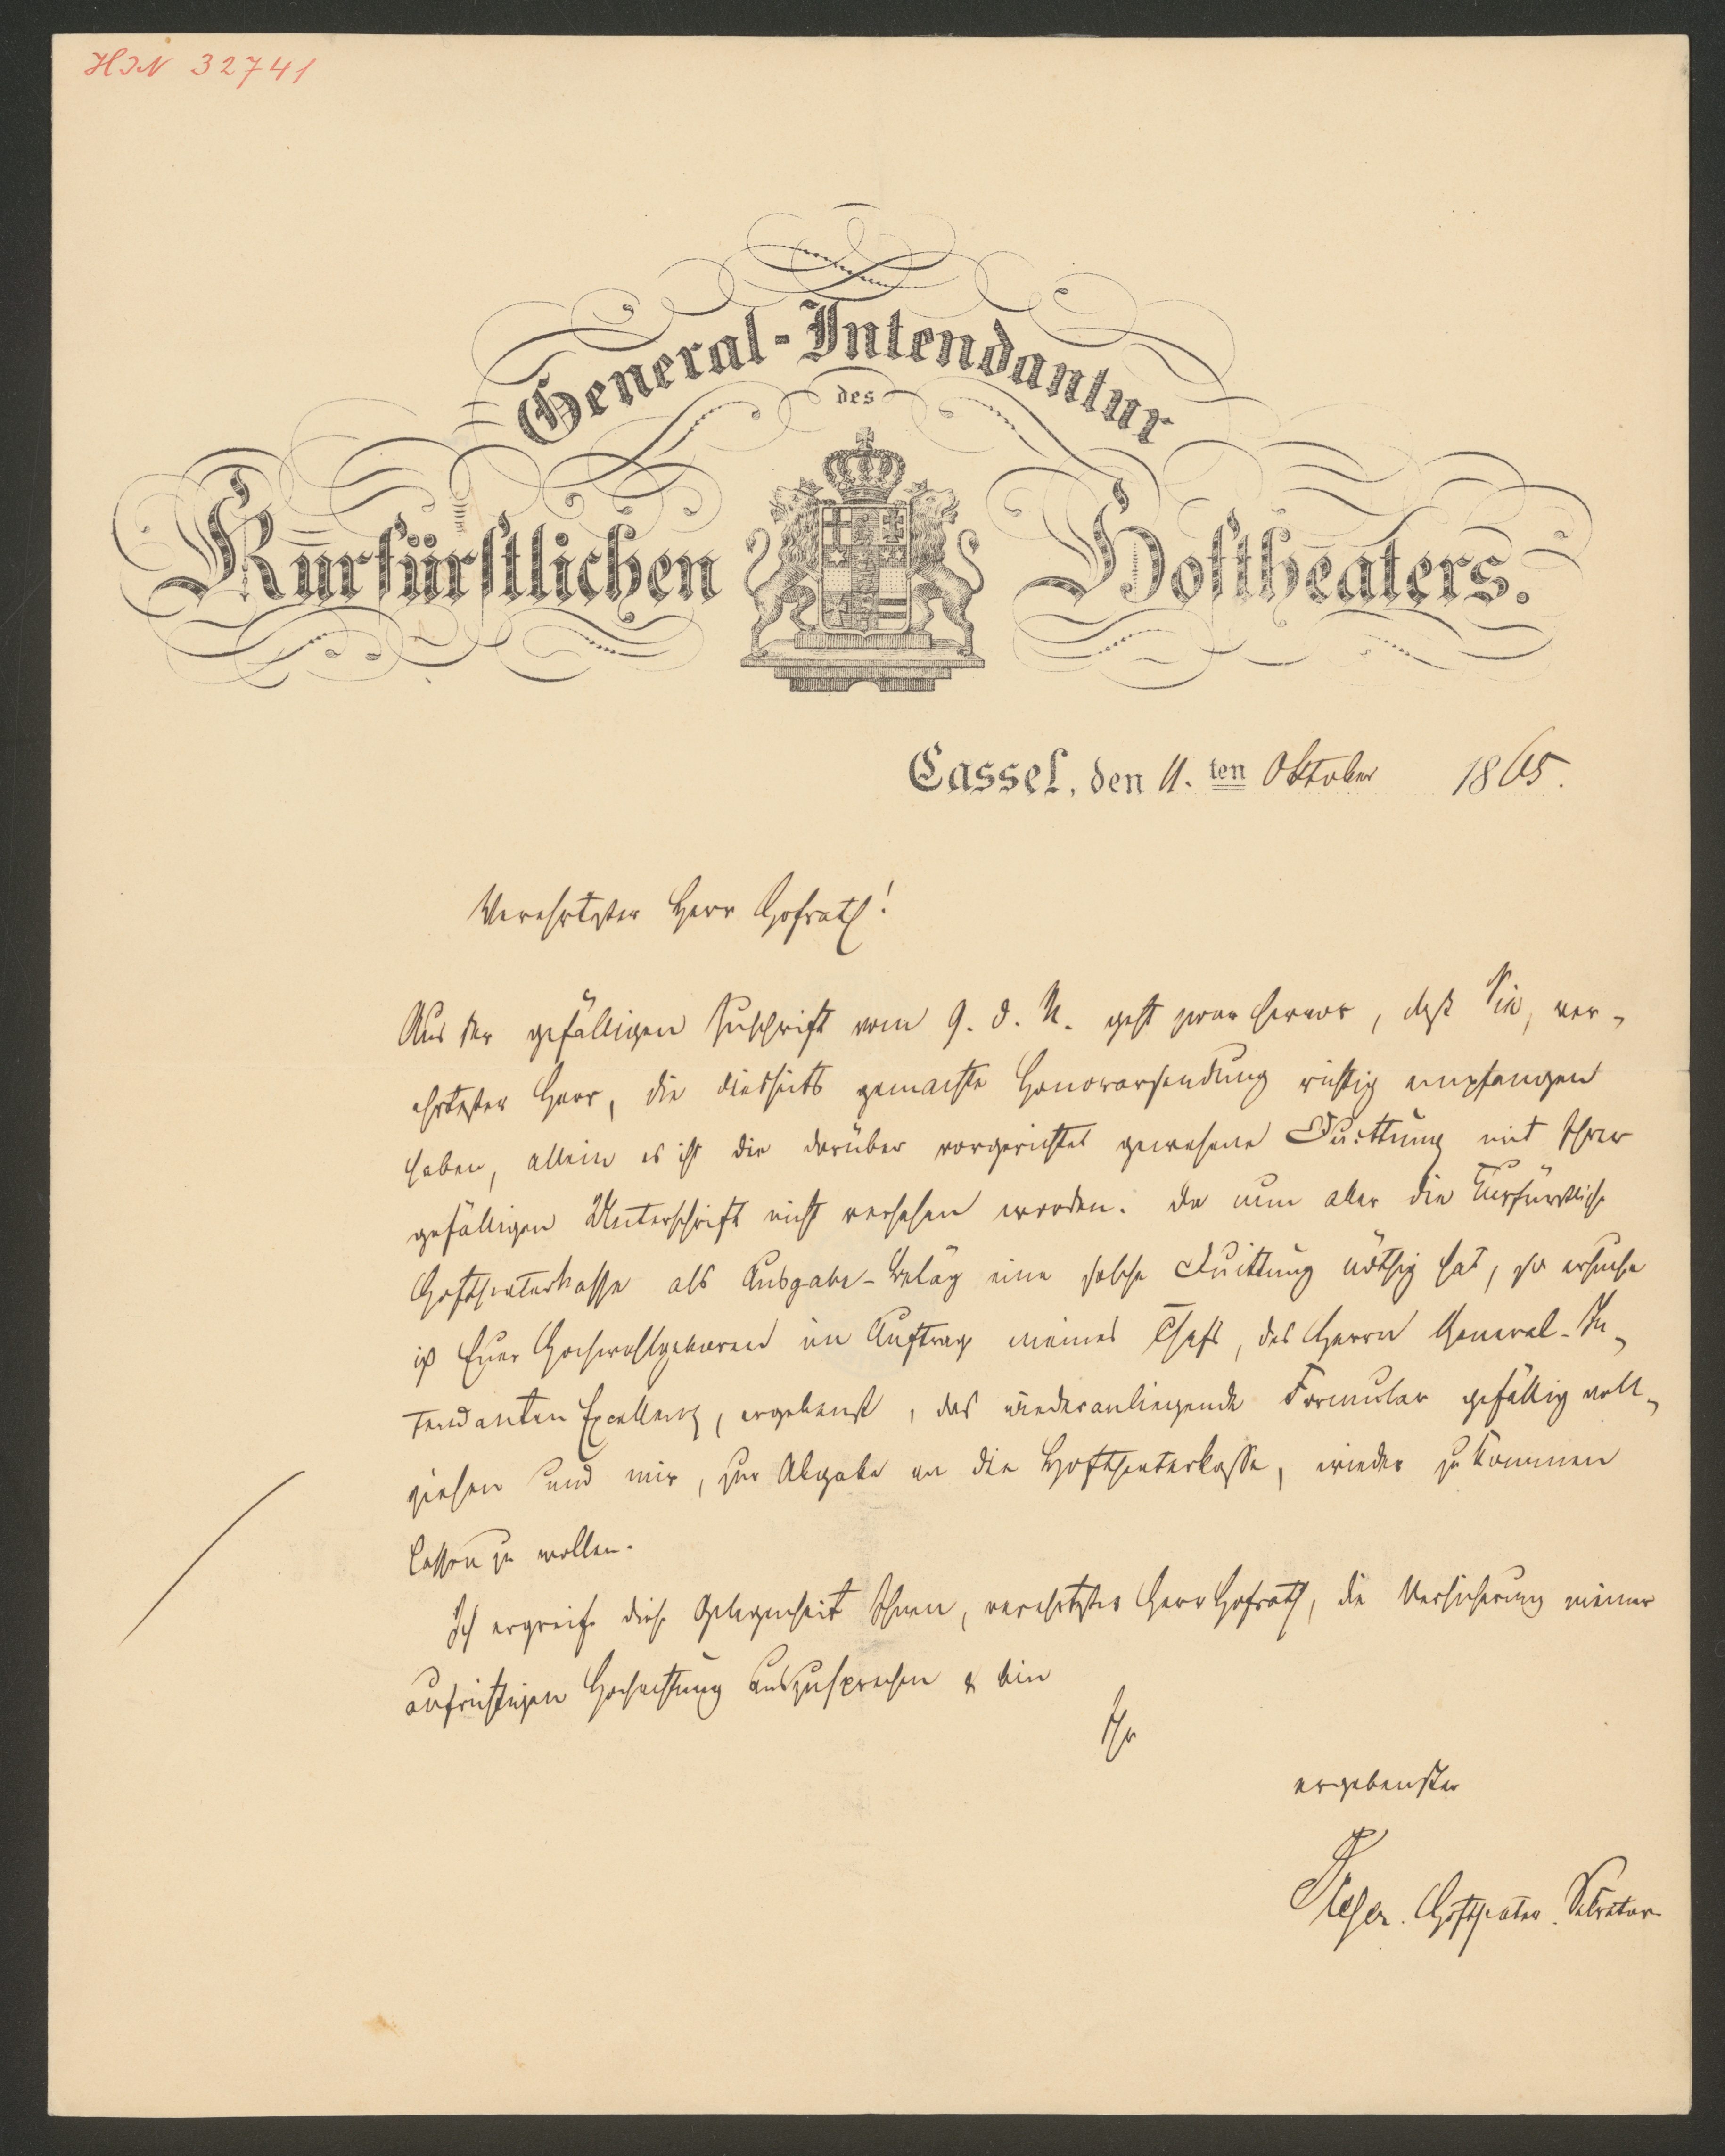 HIN 32741
General-Intendantur
des
Kurfürstlichen Hoftheaters.
Cassel, den 11. ten Oktober 1865.
Verehrtester Herr Hofrath!
Aus der gefälligen Zuschrift vom 9. d. M. geht zwar hervor, daß Sie, ver-
ehrtester Herr, die diesseits gemachte Honorarsendung richtig empfangen
haben, allein es ist die darüber vorgerichtet gewesene Quittung mit Ihrer
gefälligen Unterschrift nicht versehen worden. Da nun aber die Kurfürstliche
Hoftheaterkasse als Ausgabe-Beläg eine solche Quittung nöthig hat, so ersuche
ich Euer Hochwohlgeboren im Auftrag meines Chefs, des Herrn General-In-
tendanten Excellenz, ergebenst, das wiederanliegende Formular gefällig voll-
ziehen und mir, zur Abgabe an die Hoftheaterkasse, wieder zukommen
lassen zu wollen.
Ich ergreife diese Gelegenheit Ihnen, verehrtester Herr Hofrath, die Versicherung meiner
aufrichtigen Hochachtung auszusprechen & bin
Ihr
ergebenster
Hoftheater Sekretar